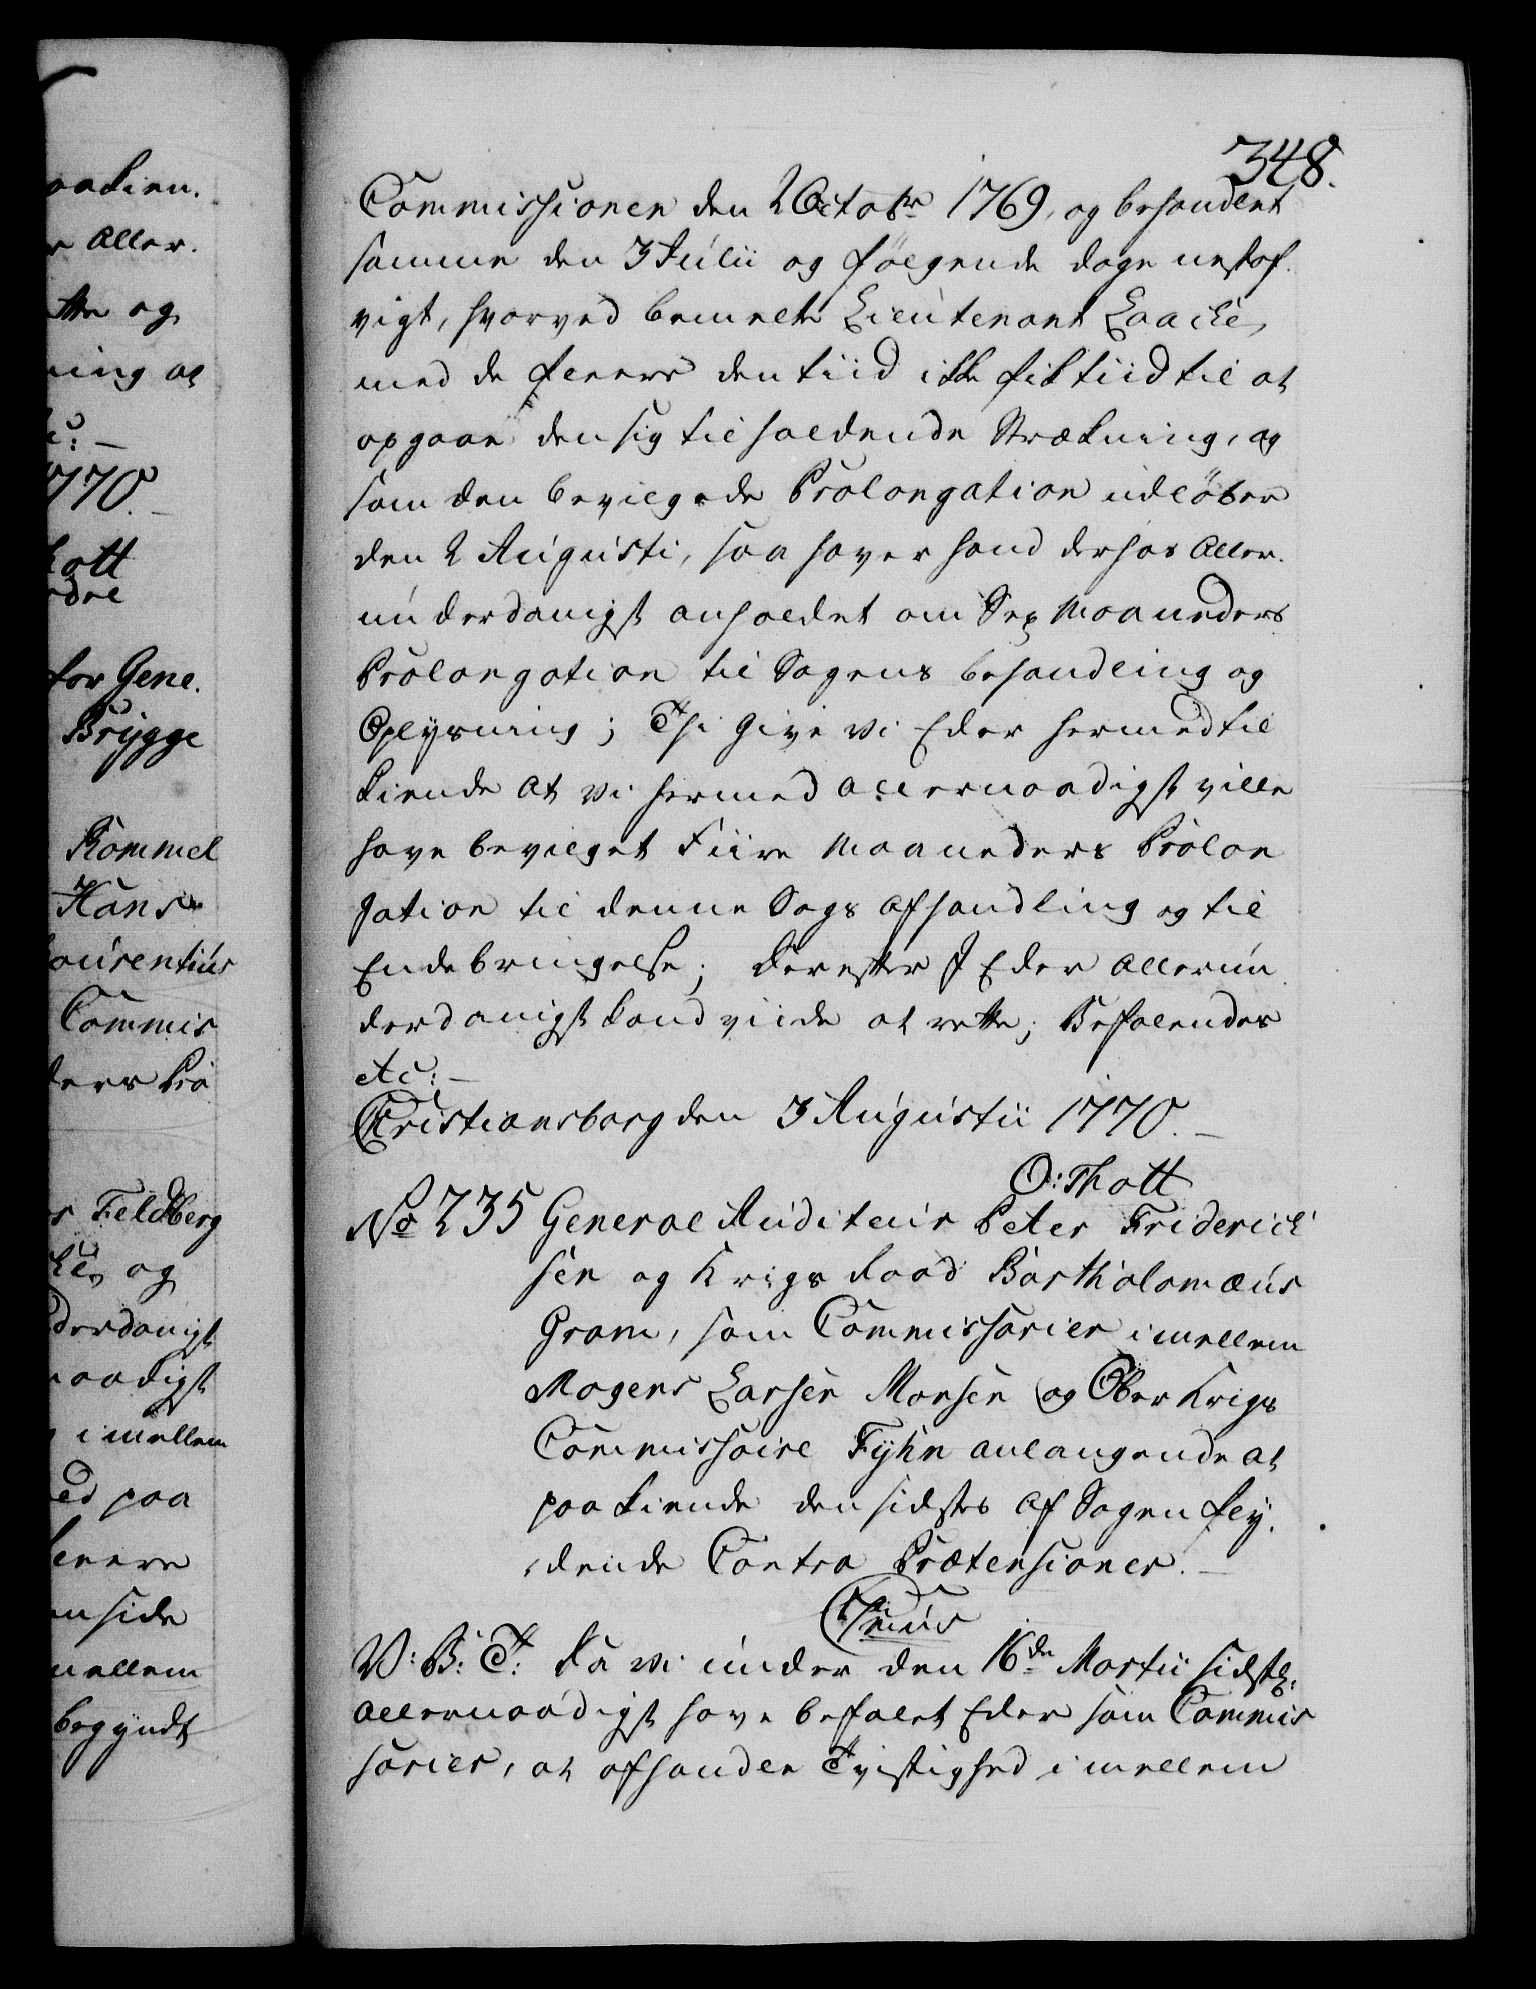 348.
Commissionen den 2 Octobr 1769, og behandlet
samme den 3 Julii og følgende dage nestaf-
vigt, hvorved bemelte Lieutenant Laacke,
med de fleere den tiid ikke fik tiid til at
opgaae den sig tilholdende Strækning, og
som den bevilgede Prolongation udløber
den 2 Augusti, saa haver hand derhos Aller-
underdanigst anholdet om Sex Maaneders
Prolongation til Sagens behandling og
Oplysning; Thi give vi Eder hermed til
kiende at vi hermed allernaadigst ville
have bevilget Fiire Maaneders Prolon
gation til denne Sags afhandling og til
Endebringelse; derefter I Eder allerun
derdanigst kand viide at rette; Befalendes
etc:
Christiansborg den 3 Augustii 1770.
O: Thott
No 235 General Auditeur Peter Friderich
sen og Krigs Raad Bartholomæus
Gram, som Commissarier imellem
Mogens Larsen Monsen og Ober Krigs
Commissaire Fyhn anlangende at
paakiende den sidstes af Sagen fly-
dende Contra Prætensioner.
V: B: T: Da vi under den 16de Martii sidstl:
allernaadigst have befalet Eder som Commis
sarier, at afhandle Tvistighed imellem
oakien.
Aller.
tte og
ning at
c:
1770.
hott
for Gene.
Brygge
Rommel
Hans
Laurentius
Commis
ders Pro
Feldberg
cke, og
derdanigst
naadigst
imellem
ed paa
leere
n side
mellem
begyndt